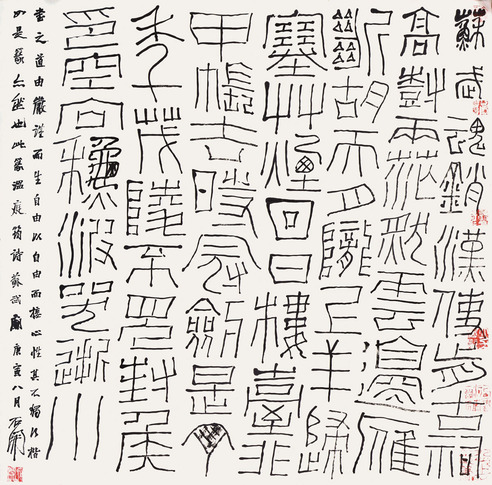 蘇武魂銷漢使前古祠
高樹兩茫然雲邊雁
斷胡天月隴上羊歸
塞草煙回日樓臺非
甲帳去時冠劍是丁
年茂陵不見封侯
印空向秋波哭逝川
書之道由嚴謹而生自由以自由而攄心性其不獨行楷
如是篆亦然也此篆溫庭筠詩蘇武廟庚寅八月